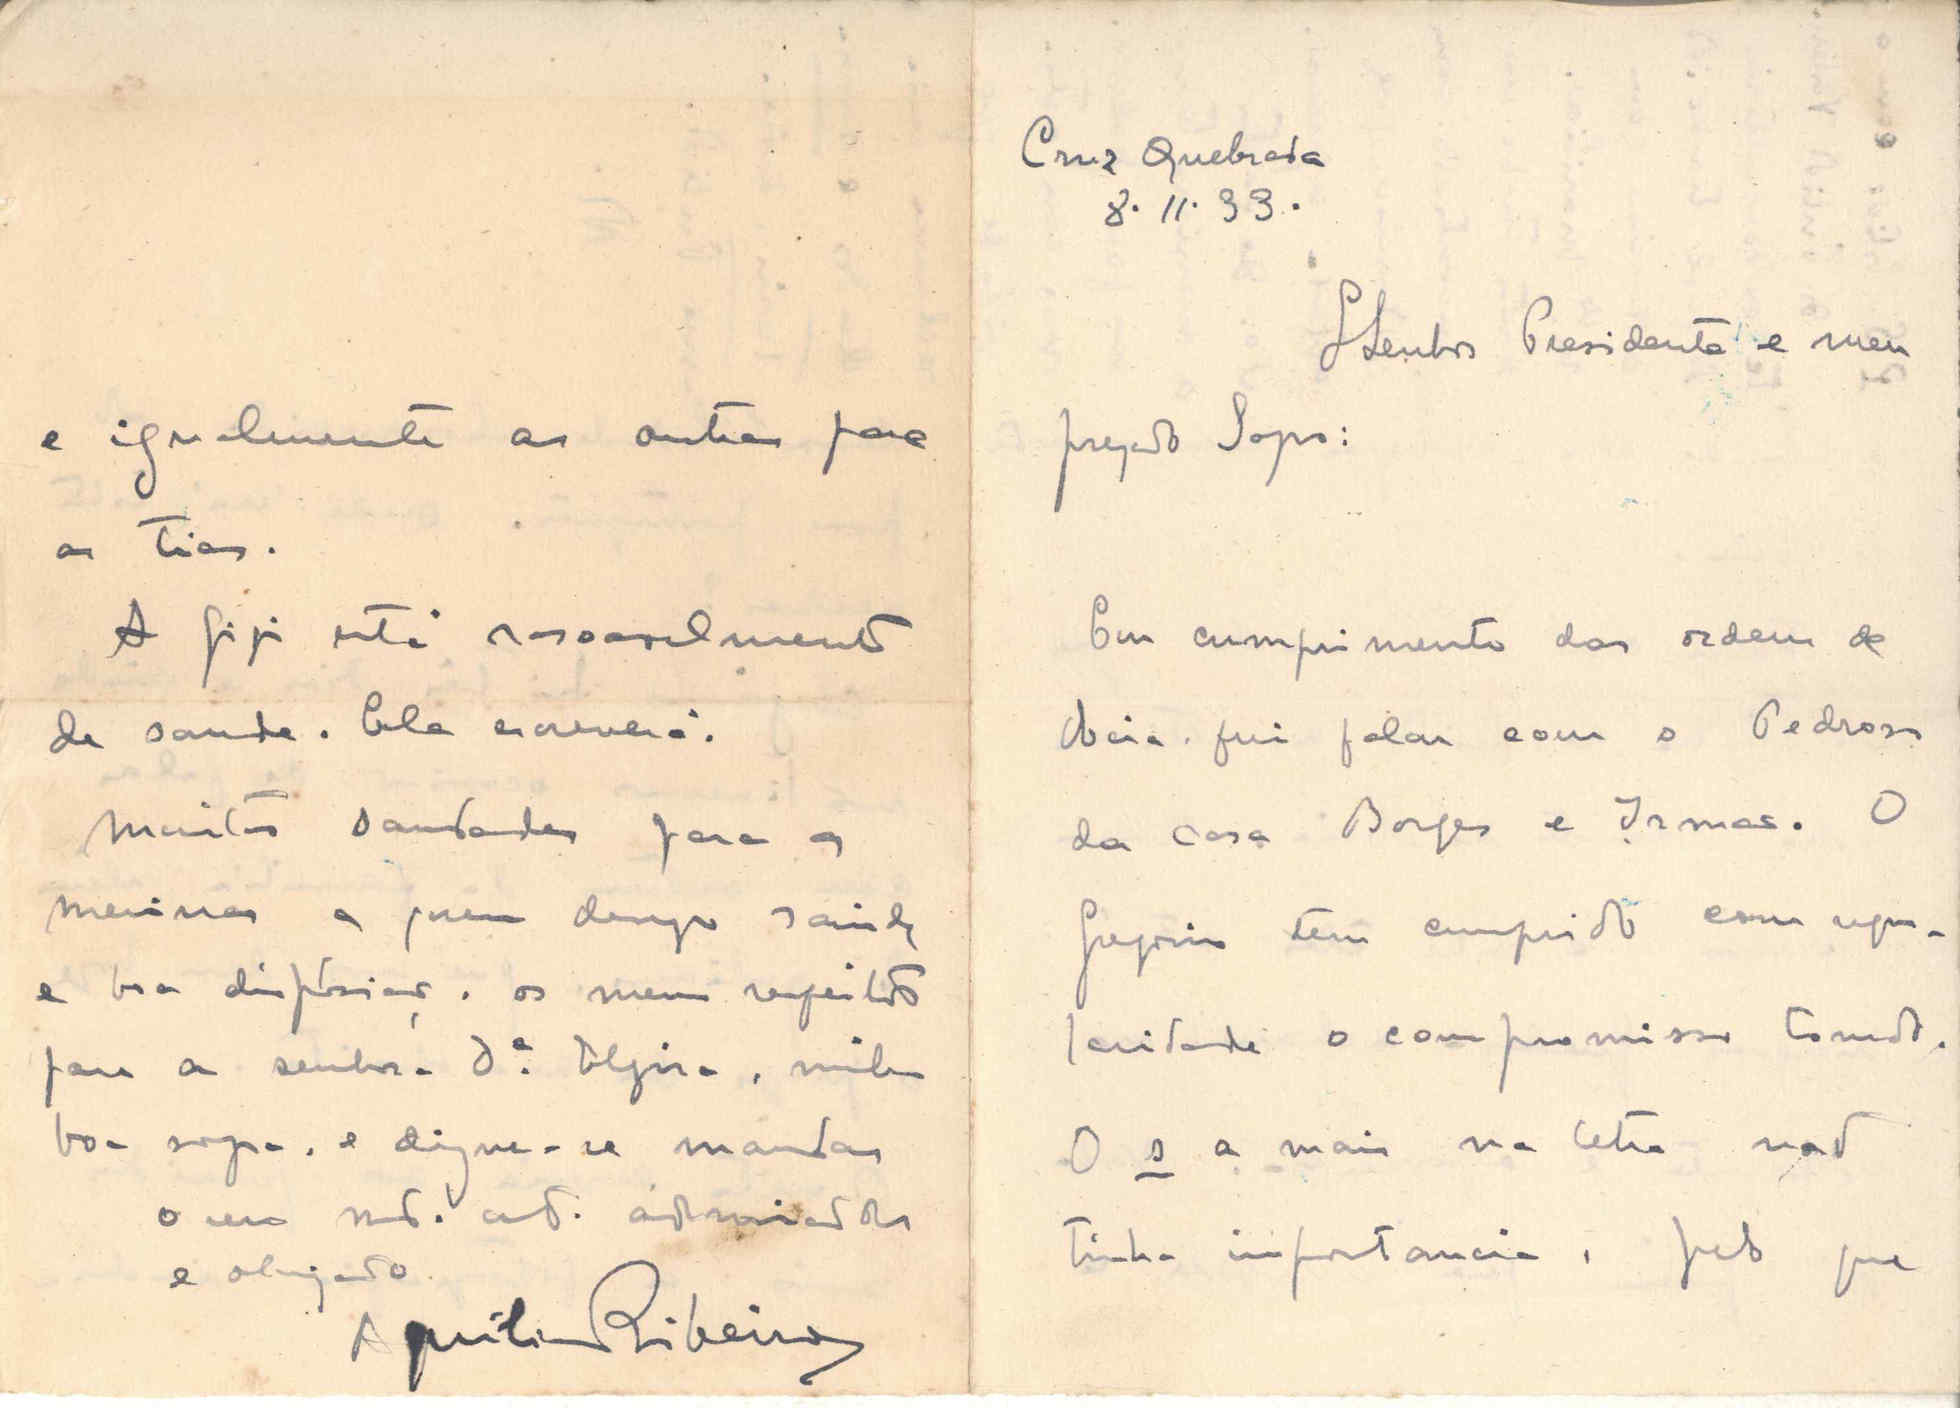 Cruz Quebrada
8. 11. 33.
Senhor Presidente e meu
prezado Sogro:
Em cumprimento das ordens de
V. Excia. fui falar com o Pedroso
da casa Borges e Irmao. O
Gregorio tem cumprido com regu-
laridade o compromisso tomado.
O s a mais na letra não
tinha importancia, pelo que
e igualmente as outras para
as Tias.
A Gigi está rasoavelmente
de saude. Ela escreverá.
Muitas saudades para as
meninas a quem desejo saude
e boa disposição, os meus respeitos
para a senhora D.ª Elzira, minha
boa sogra, e digne-se mandar
o seu mt.º at.º admirador
e obrigado
Aquilino Ribeiro